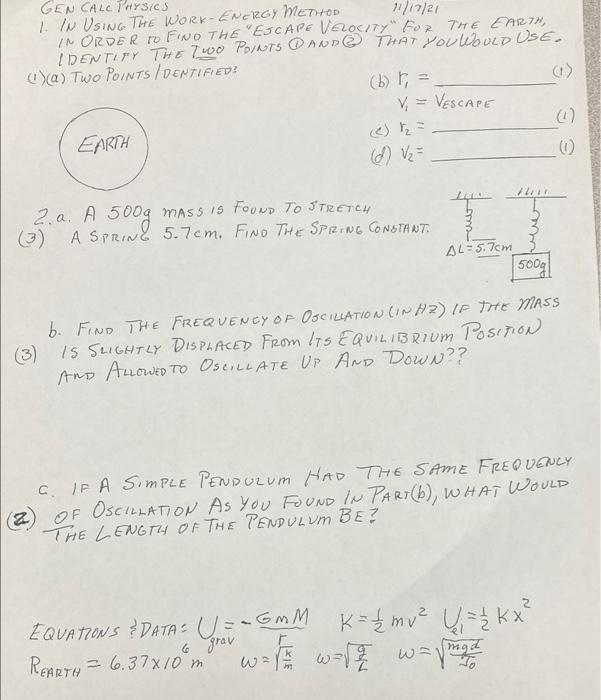 GEN CALC PHYSICS 11/17/21
1. IN USING THE WORK-ENERGY METHOD
IN ORDER TO FIND THE "ESCAPE VELOCITY" FOR THE EARTH,
IDENTIFY THE TWO POINTS ① AND ② THAT YOU WOULD USE.
(1)(a) TWO POINTS IDENTIFIED:
EARTH
(b) r₁ = ________ (1)
V₁ = VESCAPE
(c) r₂ = ________ (1)
(d) V₂ = ________ (1)
2.a. A 500g MASS IS FOUND TO STRETCH
(3) A SPRING 5.7cm. FIND THE SPRING CONSTANT.
ΔL = 5.7cm
500g
b. FIND THE FREQUENCY OF OSCILLATION (IN HZ) IF THE MASS
(3) IS SLIGHTLY DISPLACED FROM ITS EQUILIBRIUM POSITION
AND ALLOWED TO OSCILLATE UP AND DOWN??
c. IF A SIMPLE PENDULUM HAD THE SAME FREQUENCY
(2) OF OSCILLATION AS YOU FOUND IN PART(b), WHAT WOULD
THE LENGTH OF THE PENDULUM BE?
EQUATIONS & DATA: U_grav = -GmM/r K = ½ mv² U_el = ½ Kx²
R_EARTH = 6.37x10⁶ m ω = √(k/m) ω = √(g/L) ω = √(mgd/I₀)